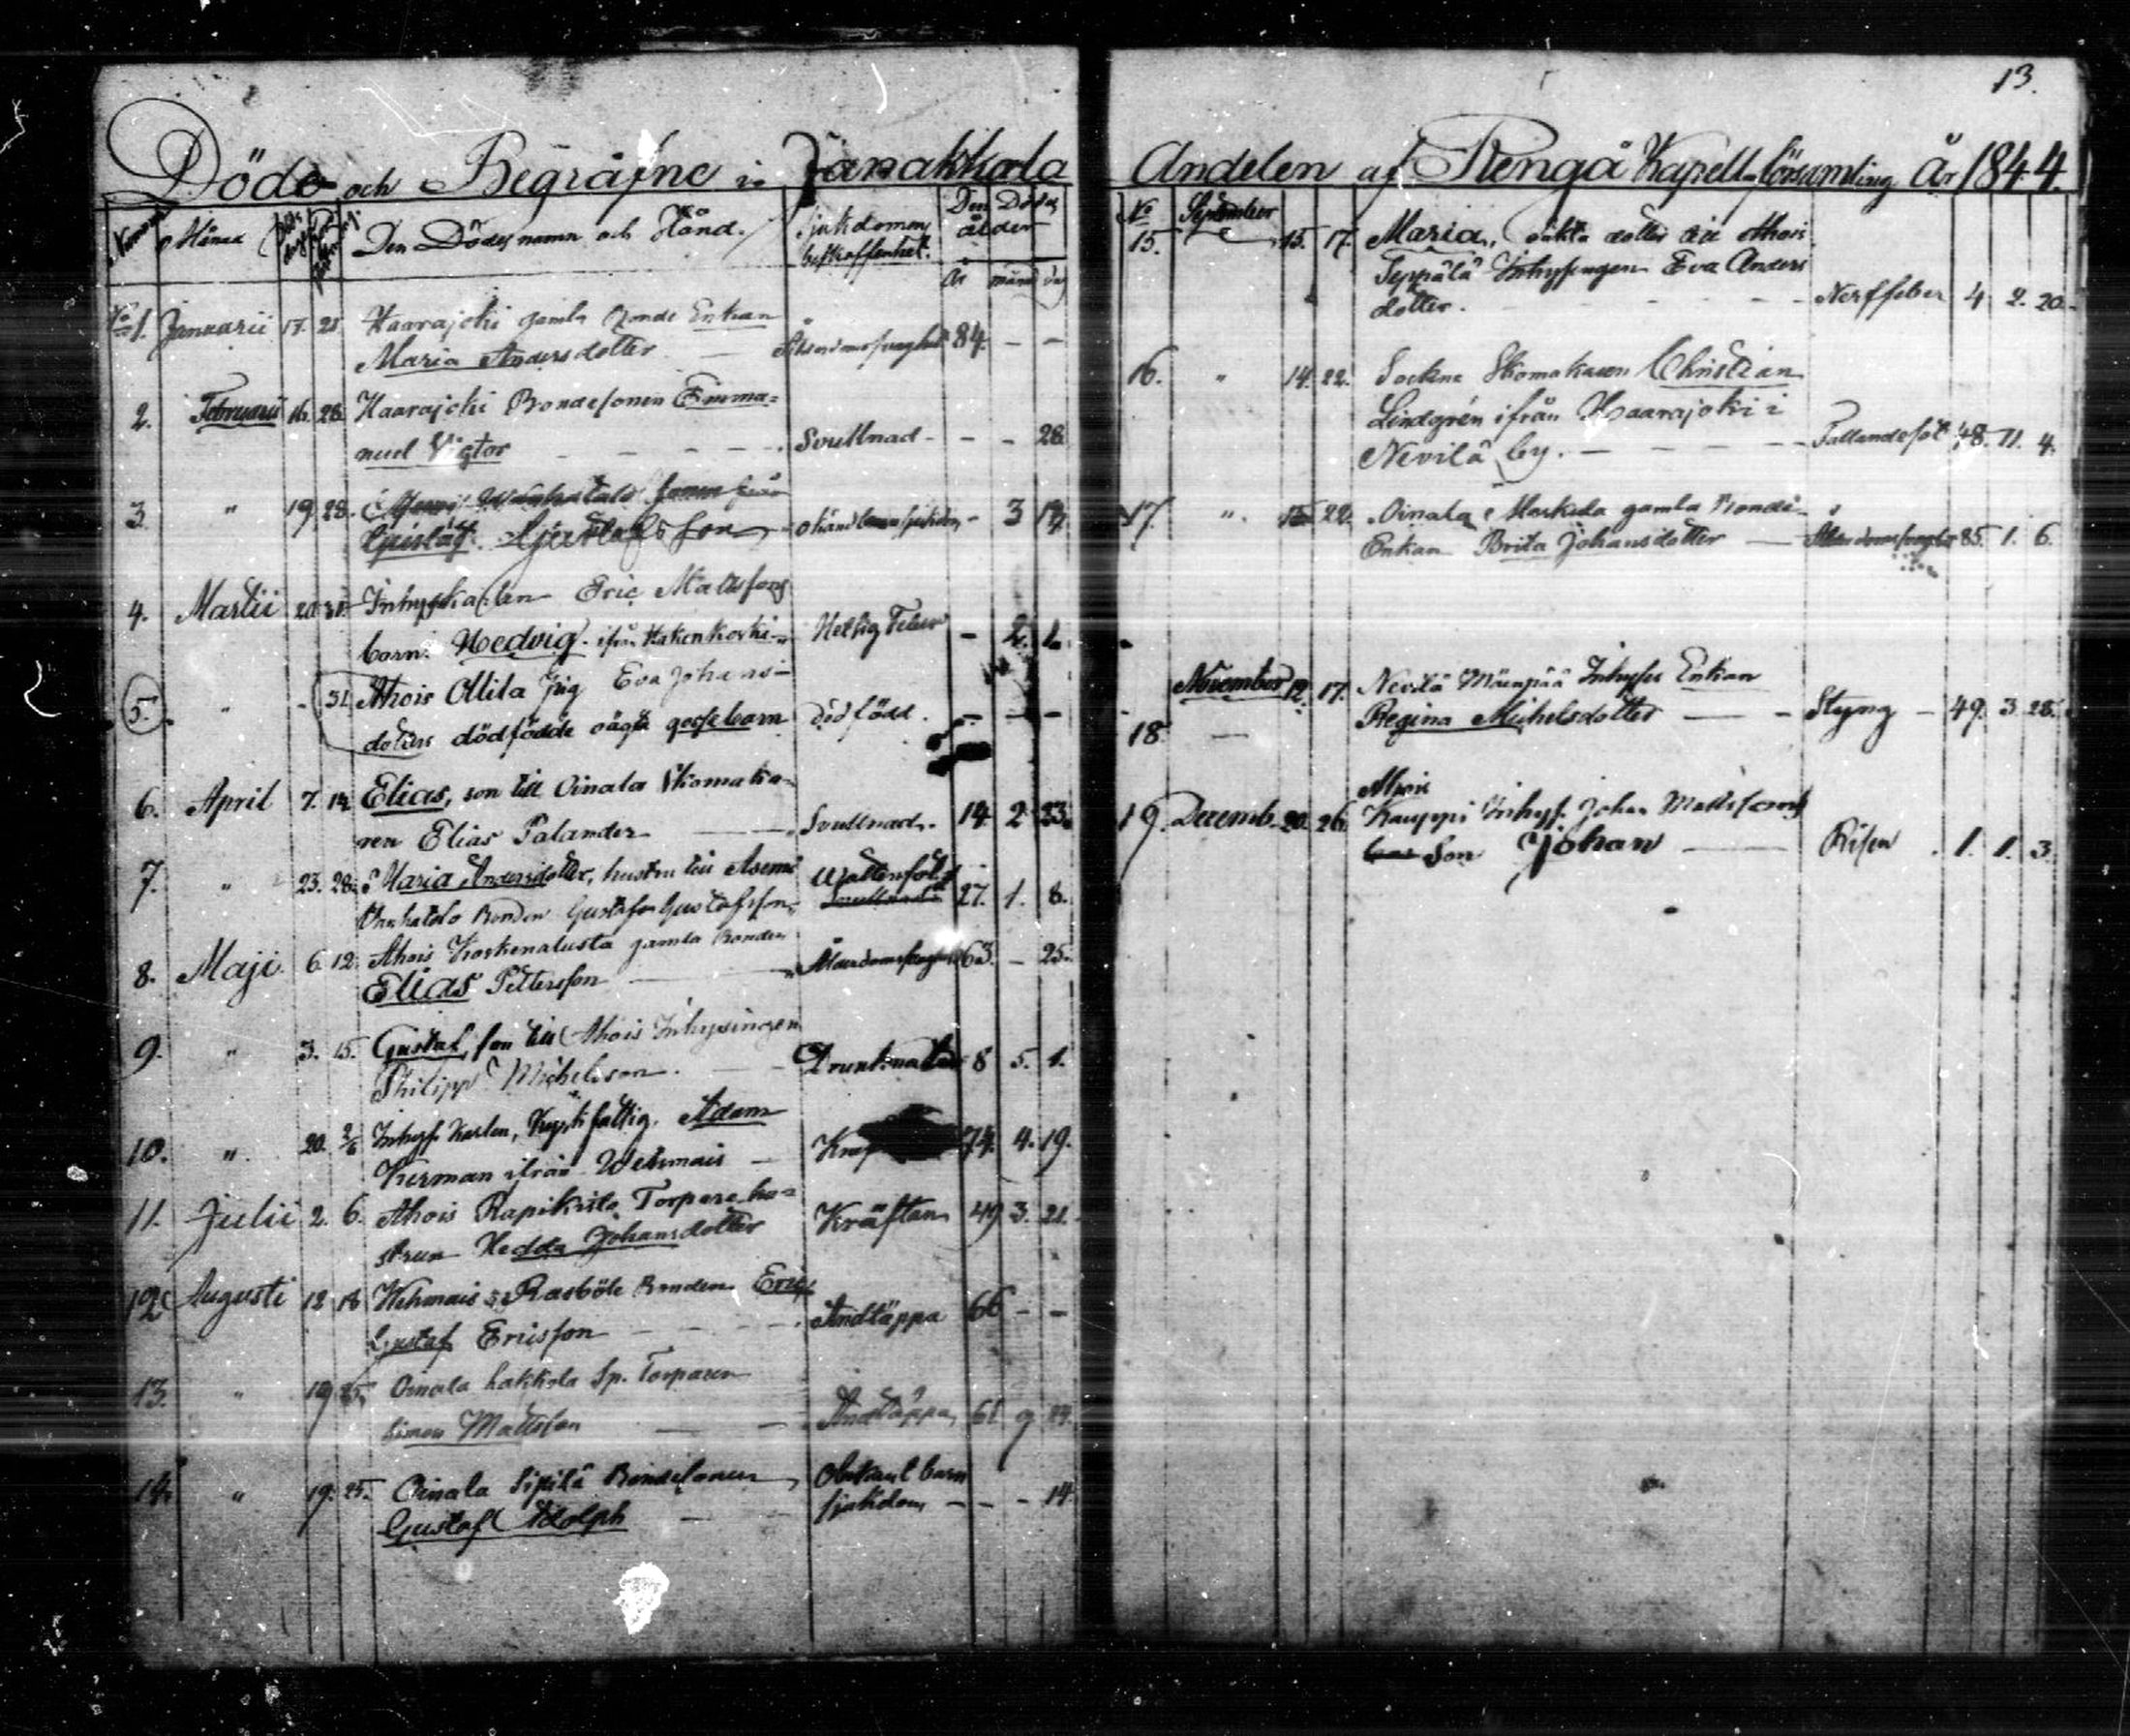 13.
Döde och Begrafne i Janakkala Andelen af Rengå Kapell-församling År 1844.
Månad Den Dödes namn och Stånd. Sjukdomens beskaffenhet. Den Dödes ålder
År mån
No 1. Januarii 17. 21. Haarajoki gamla Bonde Enkan
Maria Andersdotter 84. - -
2. Februarii 16. 28. Haarajoki Bondesonen Emma-
nuel Vigtor Svullnad - - - 28.
3. " 19. 28.
Gustaf Gustafsson 3
4. Martii 20. 31. Inhyskarlen Eric Mattssons
barn Hedvig ifrån Hakenkoski Hetsig Feber - 2. 1.
5. " - 31. Ahois Ollila Pig Eva Johans-
dotters dödfödde oägta gossebarn dödfödd. - - -
6. April 7. 14. Elias, son till Oinala Skomaka-
ren Elias Palander Svullnad. 14. 2. 23.
7. " 23. 28. Maria Andersdotter, hustru till
Vanhatalo Bonden Gustaf Gustafsson 27. 1. 8.
8. Maji 6. 12. Ahois Koskenalusta gamla Bonden
Elias Pettersson 63. - 25.
9. " 3. 15. Gustaf, son till Ahois Inhysingen
Philipp Michelsson. Drunknade 8 5. 1.
10. " 20. 2/6 Inhys Karlen, Kyrkfattig, Adam
Kerman ifrån Wehmais 74. 4. 19.
11. Julii 2. 6. Ahois Rapikisto Torpare hu-
strun Hedda Johansdotter Kräftan 49 3. 21.
12. Augusti 12 18 Wehmais Rasböle Bonden Eric
Gustaf Ericsson Andtäppa 66 - -
13. " 19 25. Oinala Sp. Torparen
Simon Mattsson Andtäppa 61 9
14. " 19. 25. Oinala Sipilä Bondesonen
Gustaf Adolph Obekant barn
sjukdom - - - 14.
No 15. September 15. 17. Maria, äkta dotter till Ahois
Seppälä Inhysingen Eva Anders
dotter. Nerffeber 4 2. 20.
16. " 14. 22. Sockne Skomakaren Christian
Lindgrén ifrån Haarajoki i
Nevilä by. Fallandesot 48. 11. 4.
17. " 22. Oinala Markula gamla Bonde
Enkan Brita Johansdotter 85. 1. 6.
18. November 12. 17. Nevilä Mäenpää Inhyses Enkan
Regina Michelsdotter Styng - 49. 3. 28.
19. Decemb. 20. 26. Ahois
Kauppi Inhys. Johan Mattssons
Son Johan Risen 1. 1. 3.